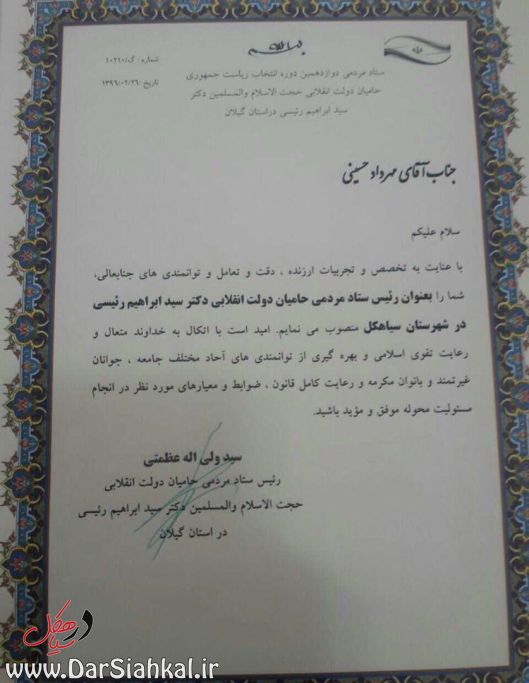 بسم الله
شماره : گ/۱۰۲۱۰
تاریخ :۱۳۹۶/۰۲/۲۶
ستاد مردمی دوازدهمین دوره انتخاب ریاست جمهوری
حامیان دولت انقلابی حجت الاسلام والمسلمین دکتر
سید ابراهیم رئیسی دراستان گیلان
جناب آقای مهرداد حسینی
سلام علیکم
با عنایت به تخصص و تجربیات ارزنده ، دقت و تعامل و توانمندی های جنابعالی،
شما را بعنوان رئیس ستاد مردمی حامیان دولت انقلابی دکتر سید ابراهیم رئیسی
در شهرستان سیاهکل منصوب می نمایم. امید است با اتکال به خداوند متعال و
رعایت تقوی اسلامی و بهره گیری از توانمندی های آحاد مختلف جامعه ، جوانان
غیرتمند و بانوان مکرمه و رعایت کامل قانون ، ضوابط و معیارهای مورد نظر در انجام
مسئولیت محوله موفق و مؤید باشید.
سید ولی اله عظمتی
رئیس ستاد مردمی حامیان دولت انقلابی
حجت الاسلام والمسلمین دکتر سید ابراهیم رئیسی
در استان گیلان
در سیاهکل
www.DarSiahkal.ir